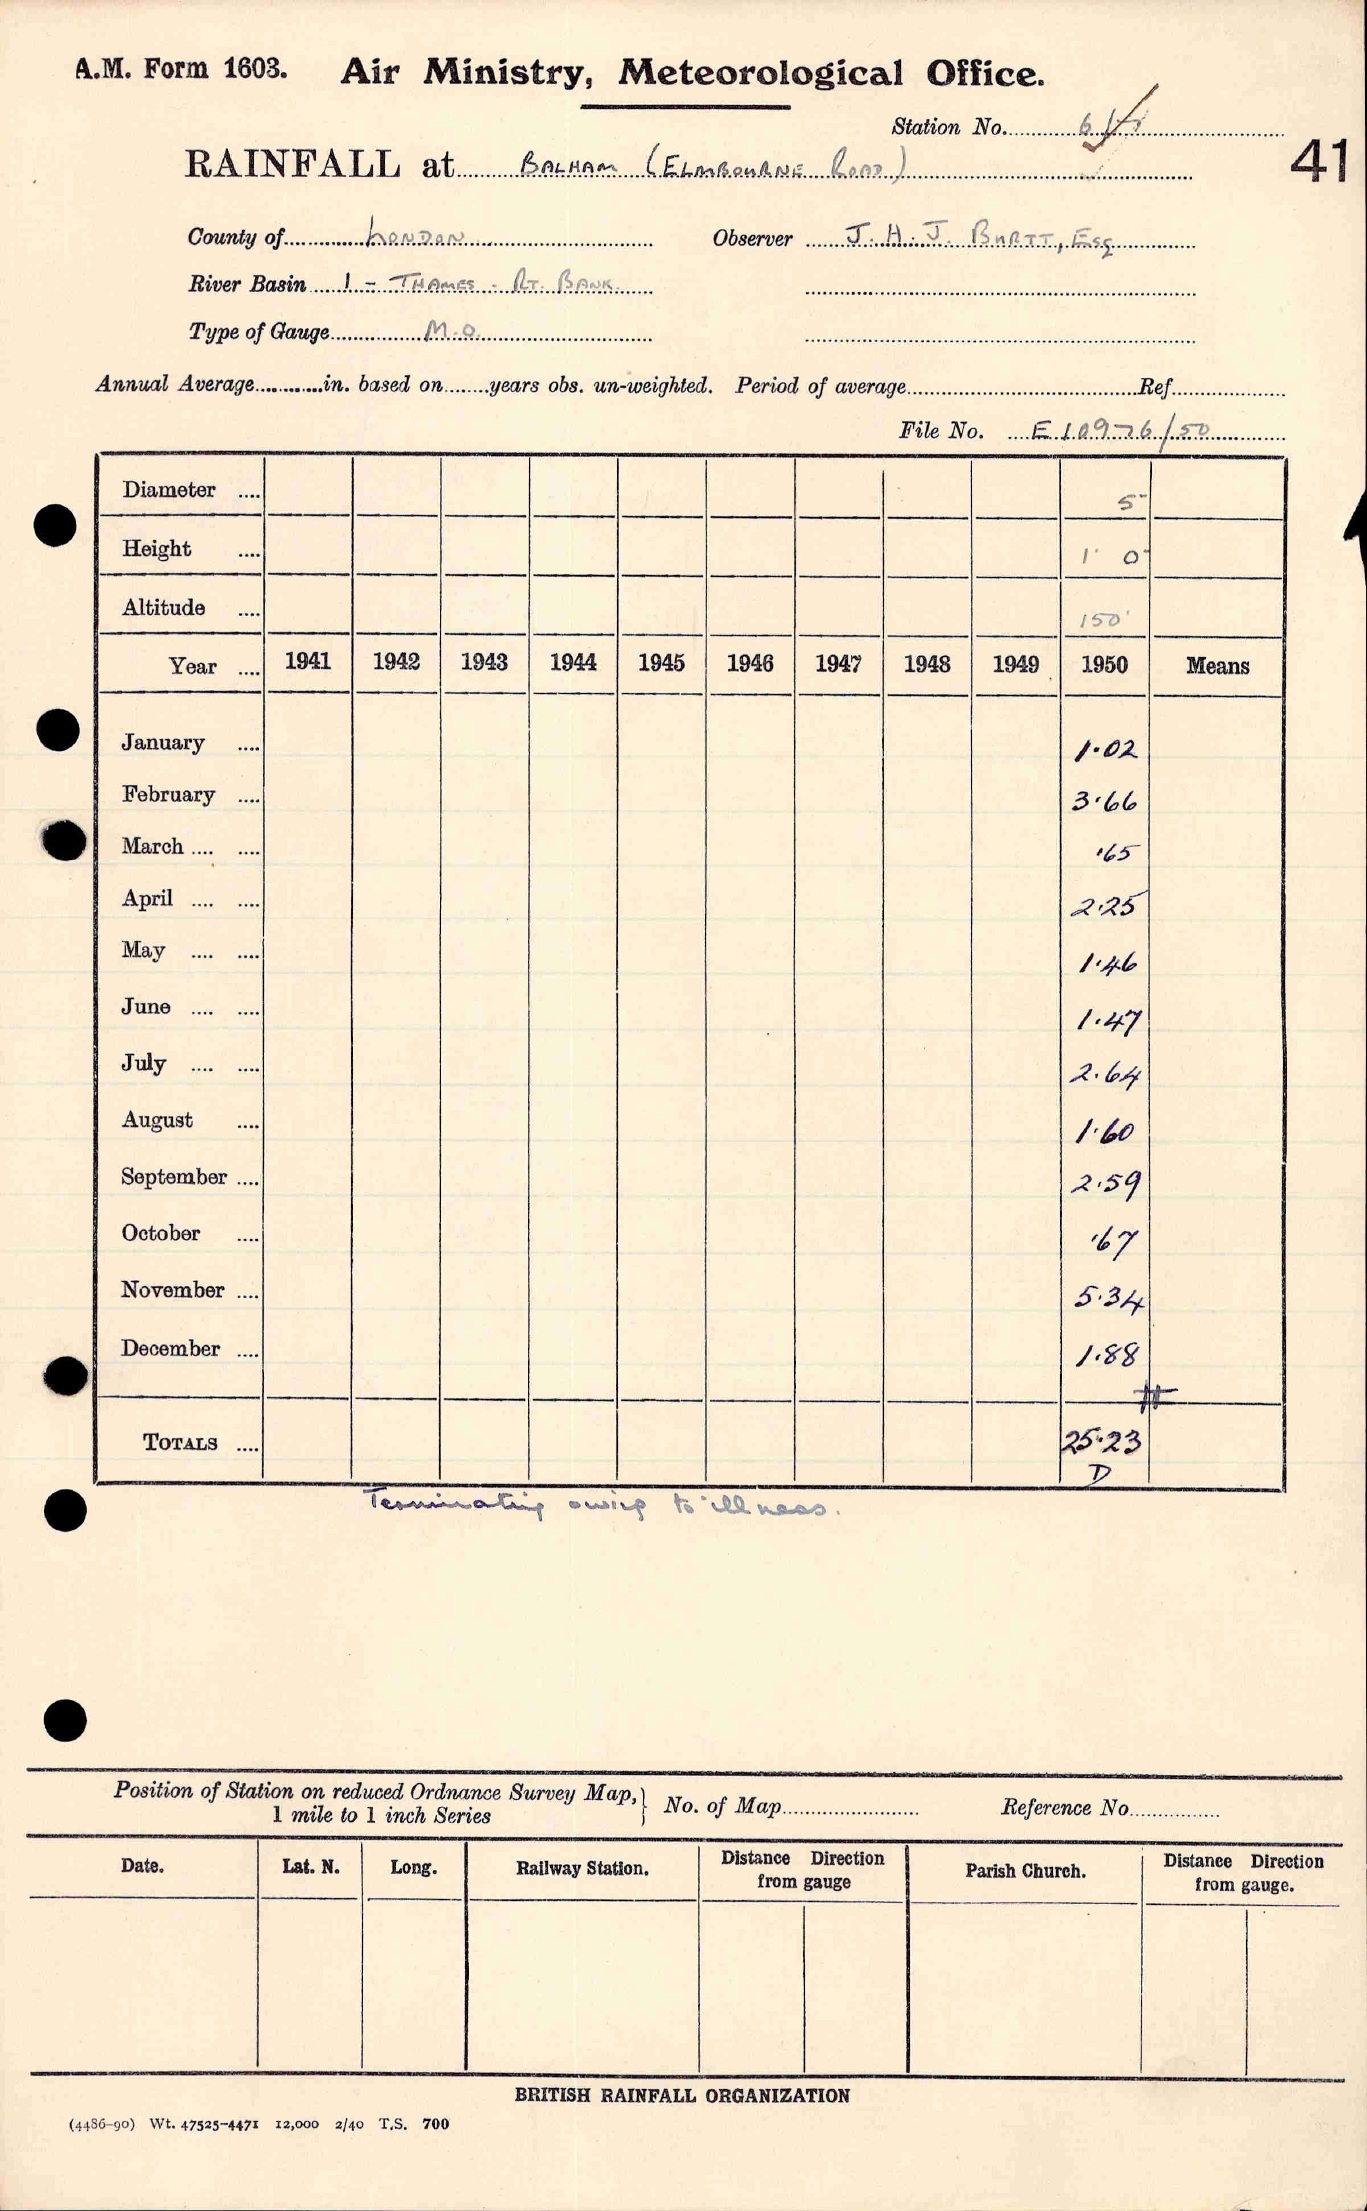 A.M. Form 1603. Air Ministry, Meteorological Office.
Station No.
41
RAINFALL at BALHAM (ELMBOURNE ROAD)
County of LONDON Observer J. H. J. BURTT, ESQ
River Basin 1 - THAMES - RT. BANK.
Type of Gauge M.O.
Annual Average............in. based on........years obs. un-weighted. Period of average Ref.
File No. E10976/50
Diameter .... 5"
Height .... 1' 0"
Altitude .... 150'
Year .... 1941 1942 1943 1944 1945 1946 1947 1948 1949 1950 Means
January .... 1.02
February .... 3.66
March .... .... .65
April .... .... 2.25
May .... .... 1.46
June .... .... 1.47
July .... .... 2.64
August .... 1.60
September .... 2.59
October .... .67
November .... 5.34
December .... 1.88
TOTALS .... 25.23
D
Terminating owing to illness.
Position of Station on reduced Ordnance Survey Map,
1 mile to 1 inch Series } No. of Map Reference No.
Date. Lat. N. Long. Railway Station. Distance Direction from gauge Parish Church. Distance Direction from gauge.
BRITISH RAINFALL ORGANIZATION
(4486-90) Wt. 47525-4471 12,000 2/40 T.S. 700